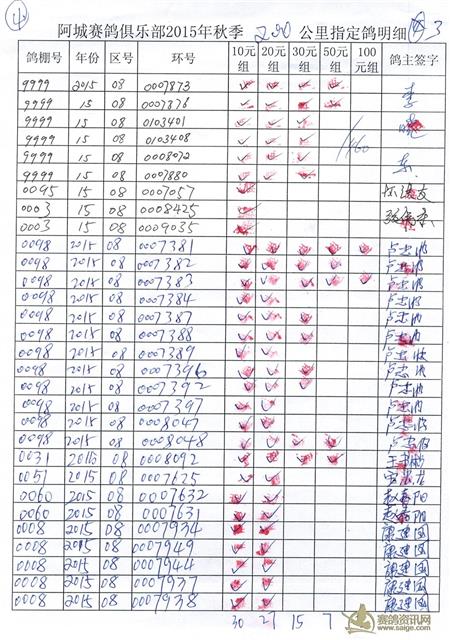 ④ 阿城赛鸽俱乐部2015年秋季 200 公里指定鸽明细 3
鸽棚号 年份 区号 环号 10元组 20元组 30元组 50元组 100元组 鸽主签字
9999 2015 08 0007873 ✓ ✓ ✓ ✓
9999 15 08 0007876 ✓ ✓ ✓ ✓ 李
9999 15 08 0103401 ✓ ✓ ✓ 晓
9999 15 08 0103408 ✓ ✓ ✓
9999 15 08 0008072 ✓ ✓ ✓ 东
9999 15 08 0007880 ✓ ✓ ✓
0095 15 08 0007057 ✓
0003 15 08 0008425 ✓
0003 15 08 0009035 ✓
0098 2015 08 0007381 ✓ ✓ ✓ ✓ ✓ 卢志波
0098 2015 08 0007382 ✓ ✓ ✓ ✓ ✓ 卢志波
0098 2015 08 0007383 ✓ ✓ ✓ ✓ ✓ 卢志波
0098 2015 08 0007384 ✓ ✓ 卢志波
0098 2015 08 0007387 ✓ ✓ ✓ 卢志波
0098 2015 08 0007388 ✓ ✓ ✓ 卢志波
0098 2015 08 0007389 ✓ ✓ 卢志波
0098 2015 08 0007396 ✓ ✓ ✓ 卢志波
0098 2015 08 0007392 ✓ ✓ ✓ 卢志波
0098 2015 08 0007397 ✓ ✓ 卢志波
0098 2015 08 0008047 ✓ ✓ 卢志波
0098 2015 08 0008048 ✓ ✓ ✓ ✓ 卢志波
0031 2015 08 0008092 ✓ ✓ ✓ ✓
0051 2015 08 0007625 ✓ ✓
0060 2015 08 0007632 ✓ ✓ 赵春阳
0060 2015 08 0007631 ✓ ✓ 赵春阳
0008 2015 08 0007934 ✓ ✓ 康建国
0008 2015 08 0007949 ✓ ✓ 康建国
0008 2015 08 0007944 ✓ ✓ 康建国
0008 2015 08 0007937 ✓ ✓ 康建国
0008 2015 08 0007938 ✓ ✓ 康建国
30 27 15 7
赛鸽资讯网
www.saige.com